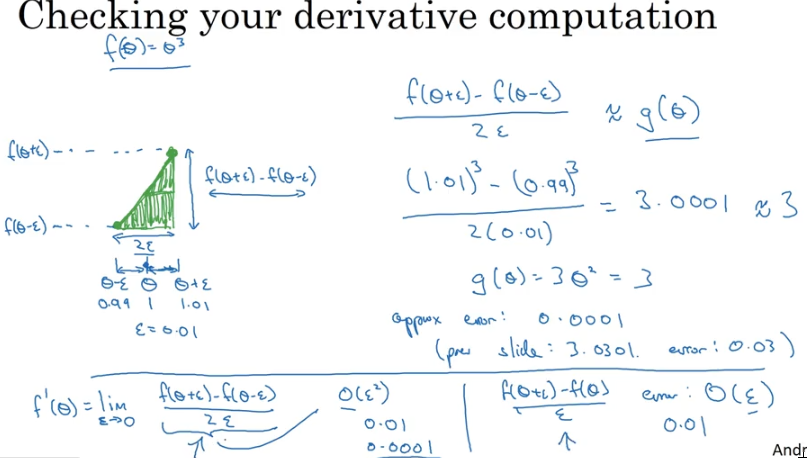 Checking your derivative computation
f(θ) = θ³
f(θ+ε) - f(θ-ε) / 2ε ≈ g(θ)
f(θ+ε)
f(θ+ε) - f(θ-ε)
(1.01)³ - (0.99)³ / 2(0.01) = 3.0001 ≈ 3
f(θ-ε)
2ε
θ-ε θ θ+ε
0.99 1 1.01
ε = 0.01
g(θ) = 3θ² = 3
approx error: 0.0001
(prev slide: 3.0301. error: 0.03)
f'(θ) = lim ε→0 f(θ+ε) - f(θ-ε) / 2ε O(ε²)
0.01
0.0001
f(θ+ε) - f(θ) / ε error: O(ε)
0.01
Andr